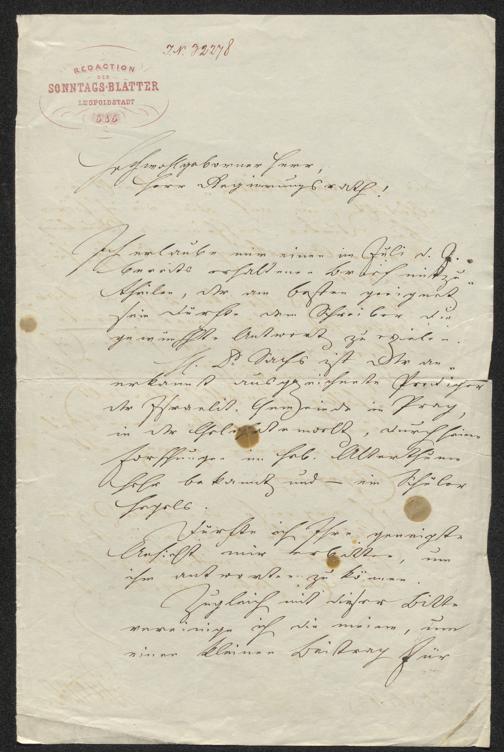 I.N. 32278
REDACTION
DER
SONNTAGS-BLÄTTER
LEOPOLDSTADT
Hochwohlgeborner Herr,
Herr Regierungsrath!
Ich erlaube mir einen im Juli d. J.
bereits erhaltenen Brief mitzu-
theilen, der am besten geeignet
sein dürfte dem Schreiber die
gewünschte Antwort zu
H. Dr Sachs ist der an-
erkannt ausgezeichnete Prediger
der Israelit. Gemeinde in Prag,
in der Gelehrtenwelt, durch seine
Forschungen im heb. Alterthume
sehr bekannt und – ein Schüler
Hegels.
Dürfte ich Ihre geneigte
Ansicht mir erbitten, um
ihm antworten zu können.
Zugleich mit dieser Bitte
vereinige ich die meine, um
einen kleinen Beitrag für